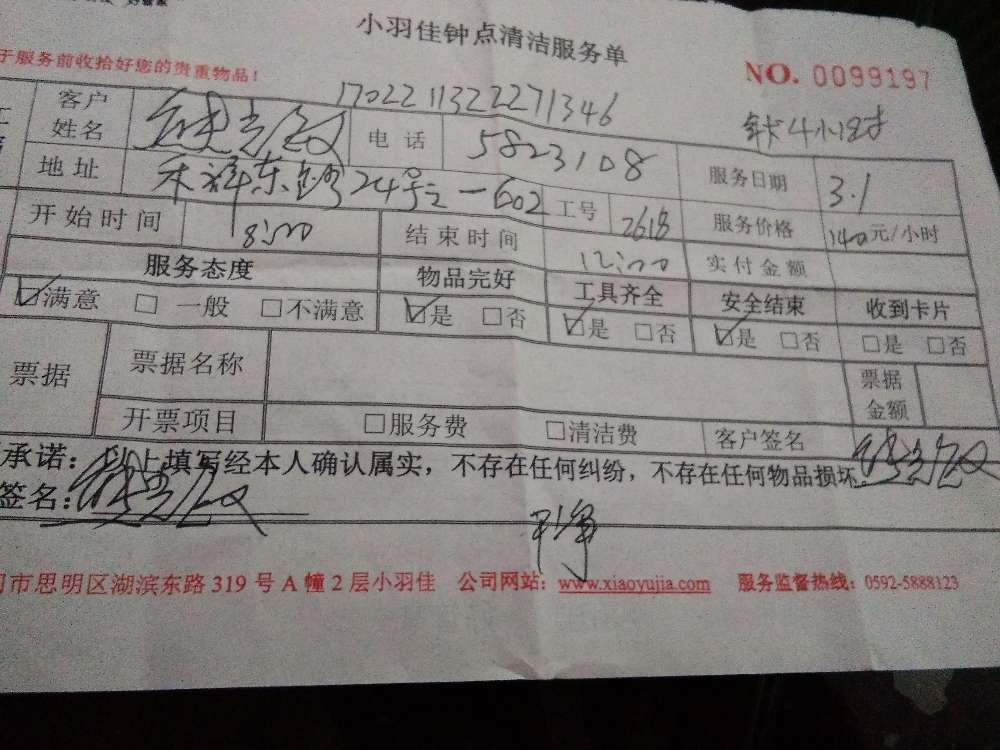 小羽佳钟点清洁服务单
于服务前收拾好您的贵重物品!
NO. 0099197
1702211322271346
4小时
客户姓名 电话 5823108 服务日期 3.1
地址 东 24号之一602 工号 2618 服务价格 140元/小时
开始时间 8:00 结束时间 12:00 实付金额
服务态度 物品完好 工具齐全 安全结束 收到卡片
☑满意 □一般 □不满意 ☑是 □否 ☑是 □否 ☑是 □否 □是 □否
票据 票据名称 票据金额
开票项目 □服务费 □清洁费 客户签名
承诺:以上填写经本人确认属实,不存在任何纠纷,不存在任何物品损坏
签名:
市思明区湖滨东路319号A幢2层小羽佳 公司网站:www.xiaoyujia.com 服务监督热线:0592-5888123